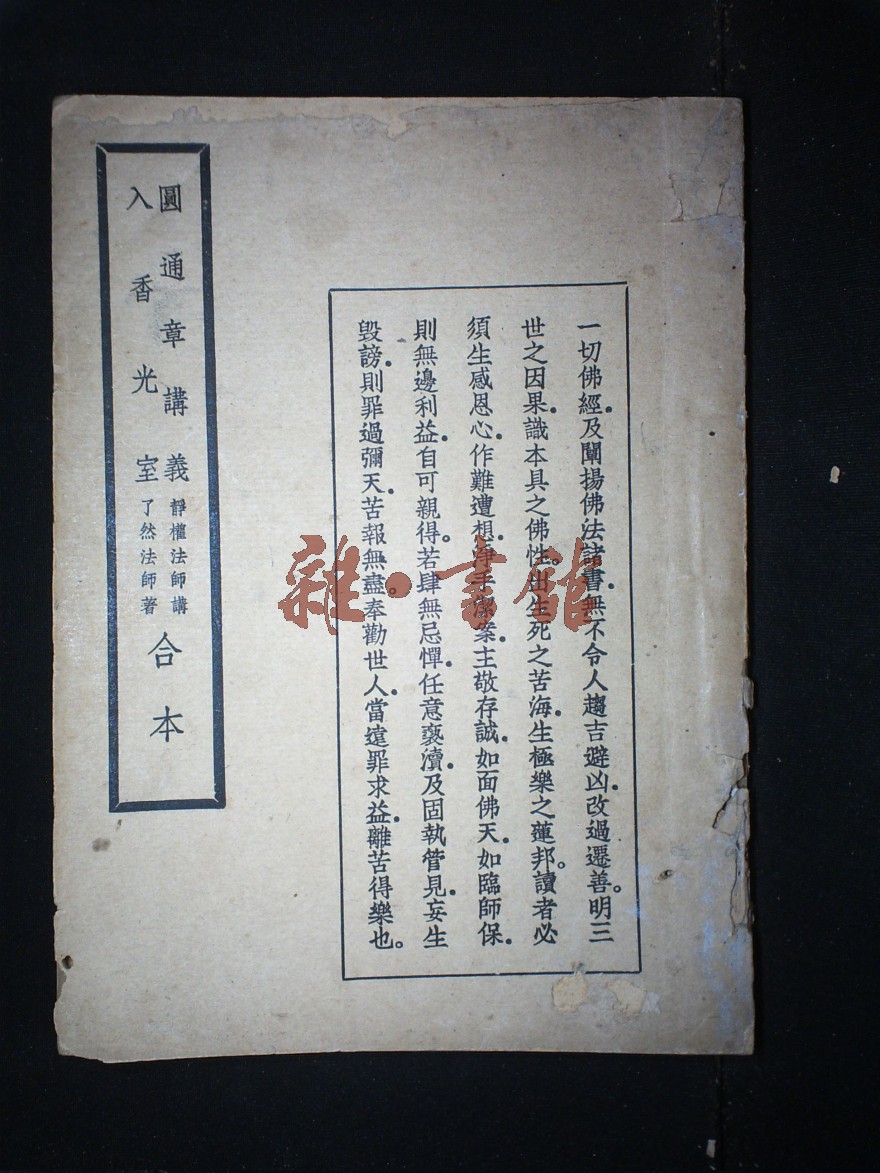 一切佛經.及闡揚佛法諸書.無不令人趨吉避凶.改過遷善。明三
世之因果.識本具之佛性.出生死之苦海.生極樂之蓮邦。讀者必
須生感恩心.作難遭想.淨手潔案.主敬存誠.如面佛天.如臨師保.
則無邊利益.自可親得。若肆無忌憚.任意褻瀆.及固執管見.妄生
毀謗.則罪過彌天.苦報無盡。奉勸世人.當遠罪求益.離苦得樂也。
圓通章講義 靜權法師講
入香光室 了然法師著
合本
雜·書館